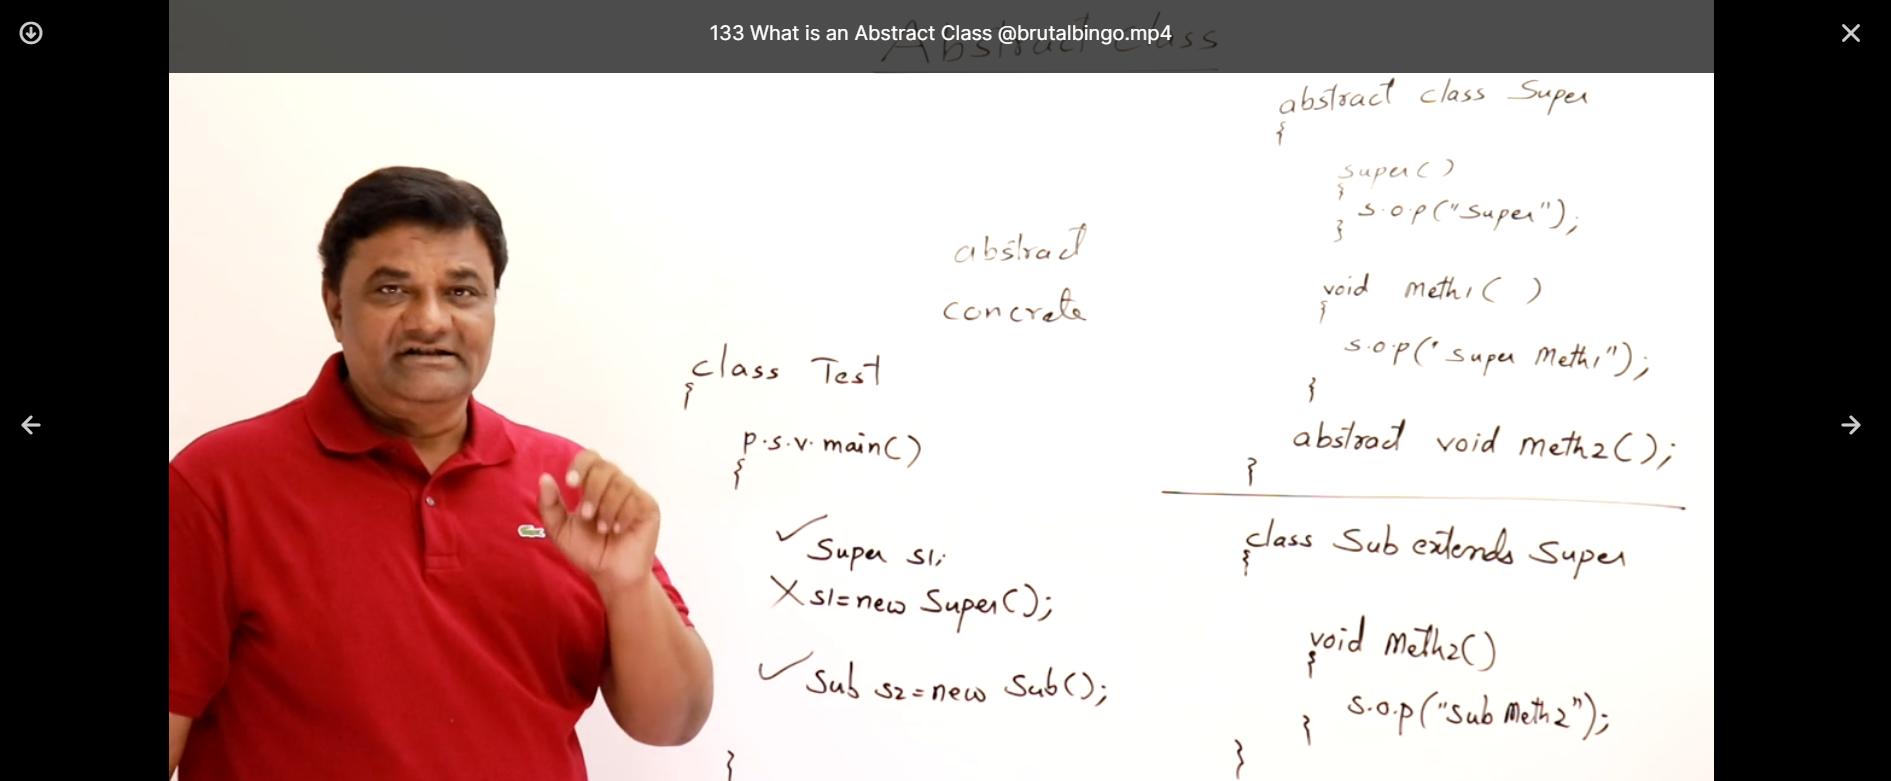 133 What is an Abstract Class @brutalbingo.mp4
Abstract class
abstract
concrete
class Test
{
p.s.v. main()
{
✓ Super s1;
X s1=new Super();
✓ Sub s2=new Sub();
}
abstract class Super
{
super()
{
s.o.p("Super");
}
void meth1( )
{
s.o.p("super Meth1");
}
abstract void meth2();
}
class Sub extends Super
{
void Meth2()
{
s.o.p("Sub Meth2");
}
}